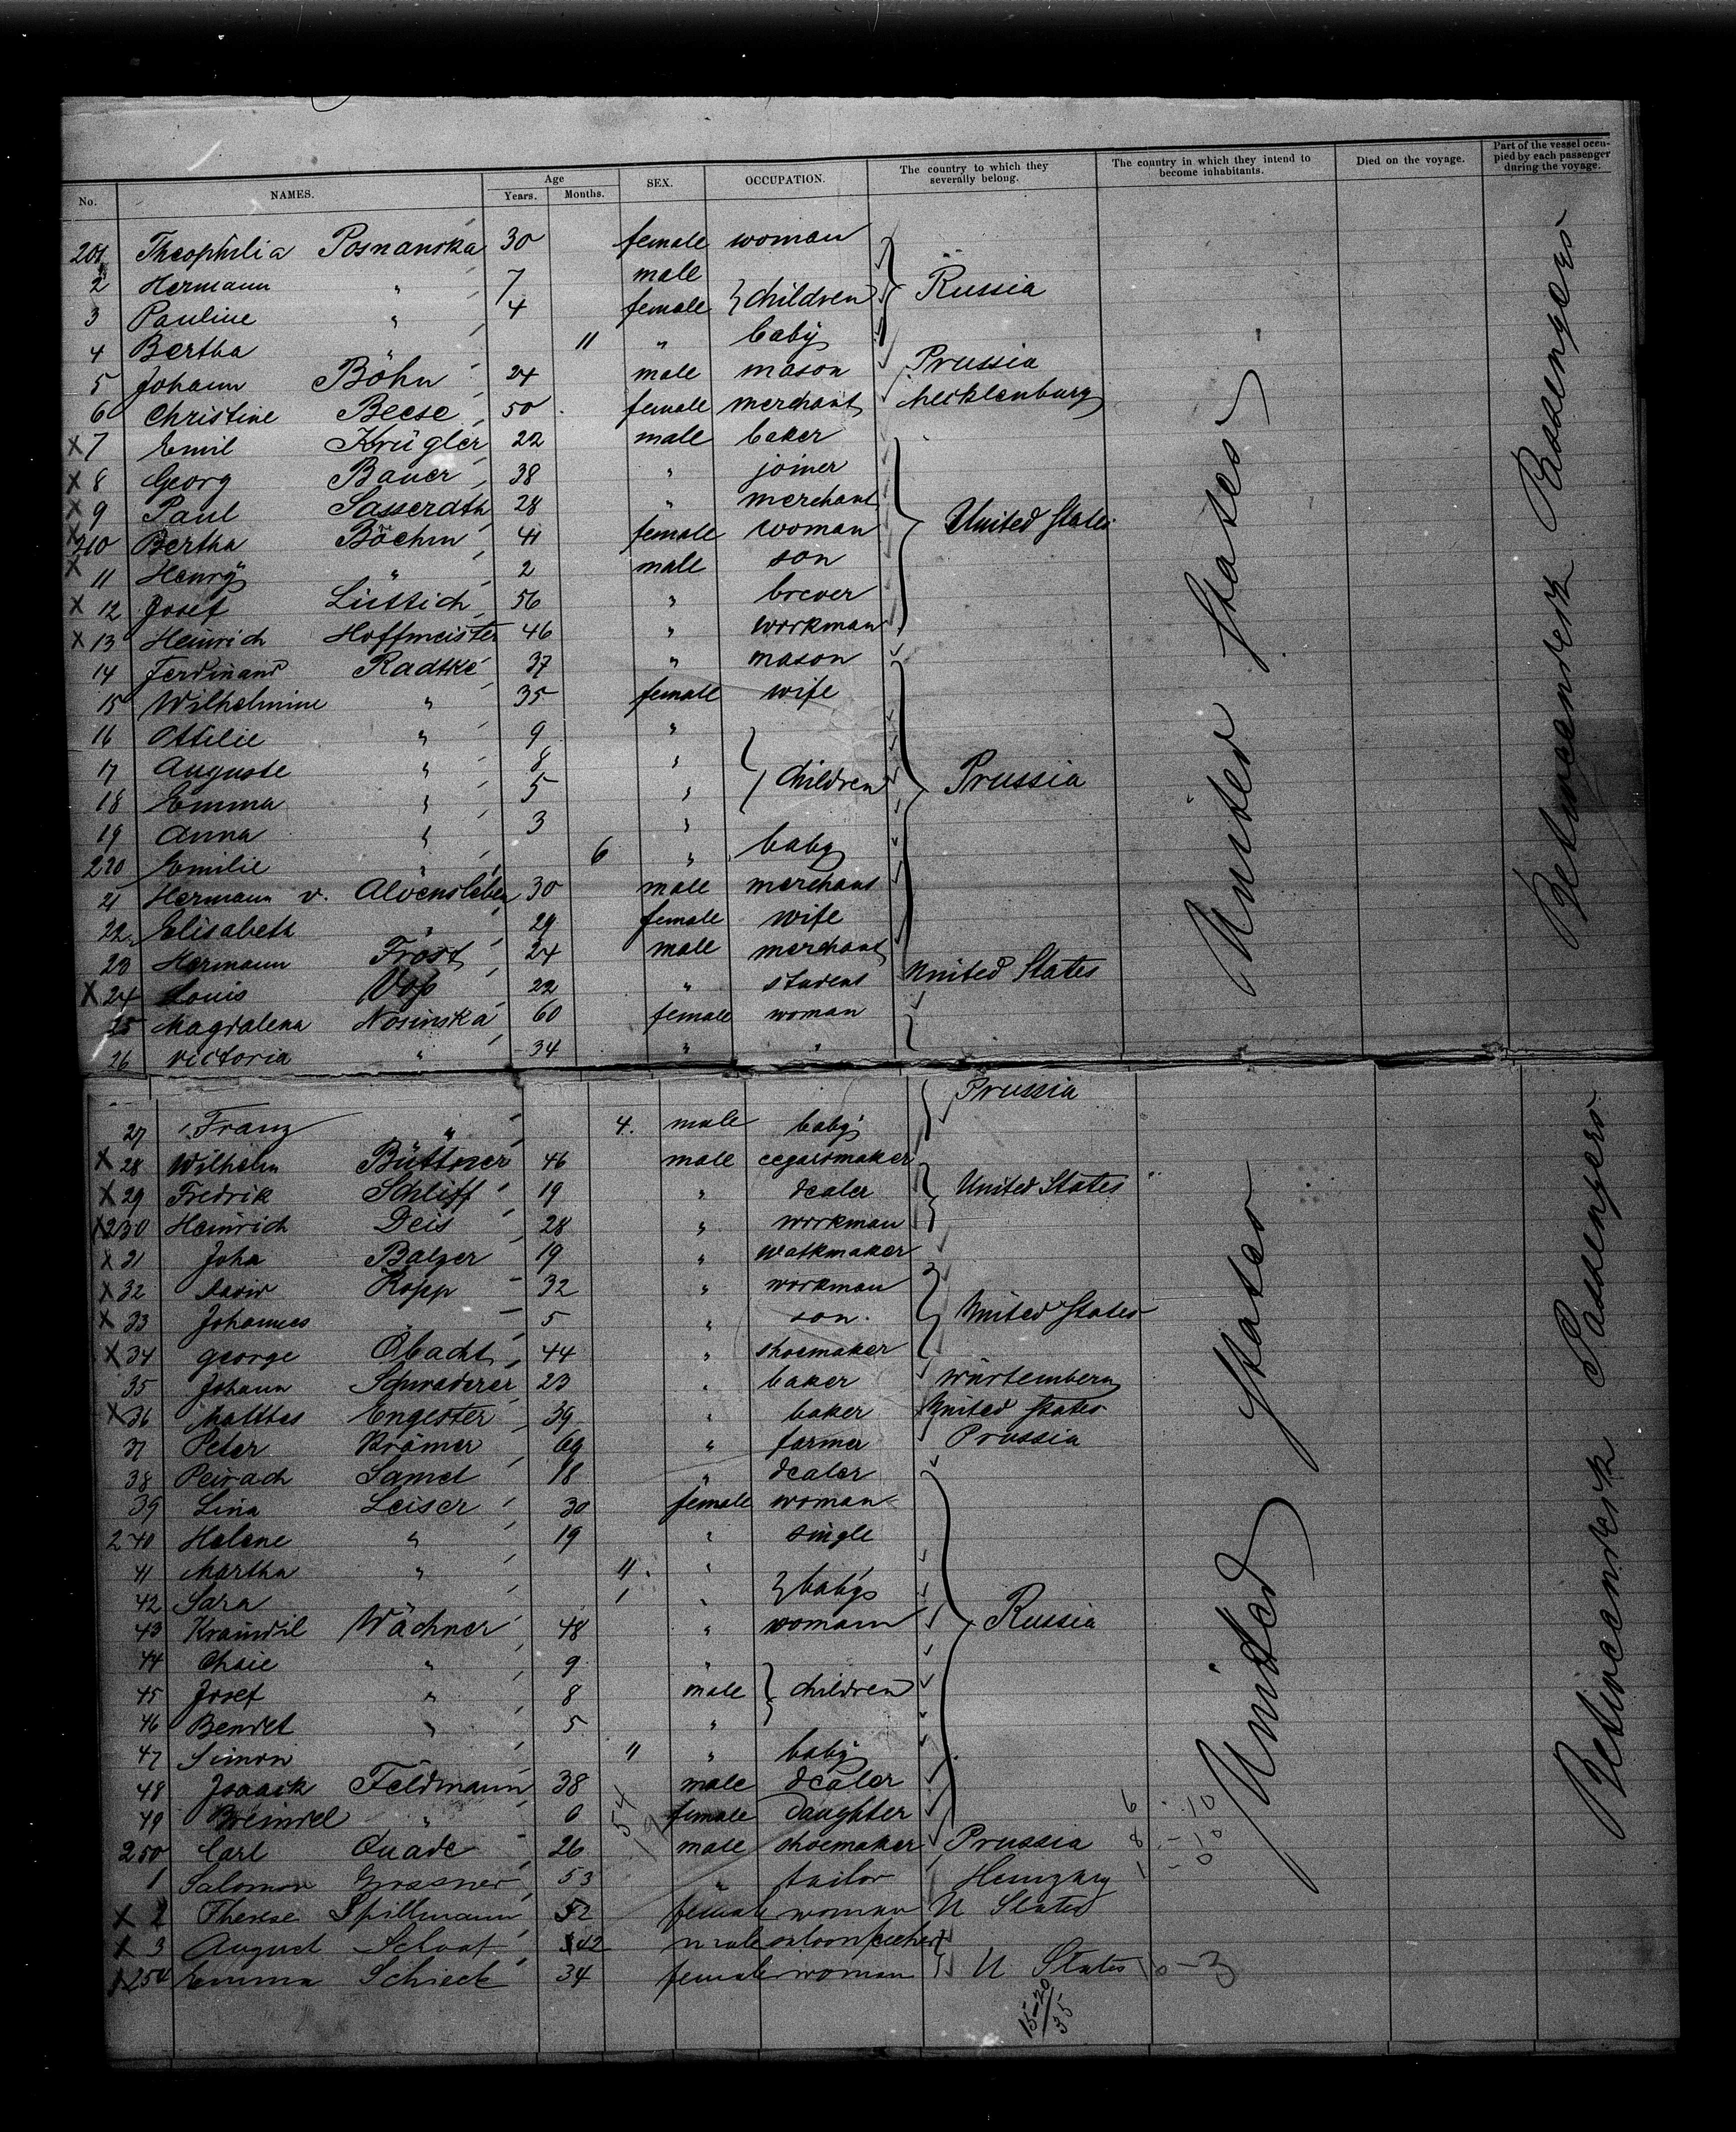 No. NAMES. Age Years. Months. SEX. OCCUPATION. The country to which they severally belong. The country in which they intend to become inhabitants. Died on the voyage. Part of the vessel occupied by each passenger during the voyage.
201 Theophilia Posnanska 30 female woman
2 Hermann " 7 male
3 Pauline " 4 female } children } Russia
4 Bertha " 11 " baby
5 Johann Böhn 24 male mason Prussia
6 Christine Beese 50 female merchant Mecklenburg
X 7 Emil Krügler 22 male baker
X 8 Georg Bauer 38 " joiner
X 9 Paul Sasserath 28 " merchant United States
X 210 Bertha Böchm 41 female woman
X 11 Henry " 2 male son
X 12 Josef Lüttich 56 " brever
X 13 Heinrich Hoffmeister 46 " workman
14 Ferdinand Radtke 37 " mason
15 Wilhelmine " 35 female wife
16 Ottilie " 9 "
17 Auguste " 8 " } children Prussia
18 Emma " 5 "
19 Anna " 3 "
220 Emilie " 6 " baby
21 Hermann v. Alvensleben 30 male merchant
22 Elisabeth " 29 female wife
23 Hermann Frost 24 male merchant
X 24 Louis Voß 22 " student United States
25 Magdalena Nosinska 60 female woman
26 Victoria " 34 " "
Prussia
27 Franz " 4. male baby
X 28 Wilhelm Büttner 46 male cegarsmaker
X 29 Fredrik Schliff 19 " dealer United States
X 230 Heinrich Deis 28 " workman
X 31 John Balzer 19 " watkmaker
X 32 David Kopp 32 " workman
X 33 Johannes " 5 " son. United States
X 34 George Obacht 44 " shoemaker
35 Johann Schwaderer 23 " baker Würtemberg
X 36 Matthas Engester 39 " baker United States
37 Peter Krämer 69 " farmer Prussia
38 Peirach Samet 18 " dealer
39 Lina Leiser 30 female woman
240 Helene " 19 " single
41 Martha " 11. "
42 Sara " 1 " } babys
43 Kraindil Wächner 48 " womann Russia
44 Chaie " 9 "
45 Josef " 8 male } children
46 Bendet " 5 "
47 Simon " 11 " baby
48 Isaack Feldmann 38 male dealer
49 Breindel " 6 female daughter
250 Carl Quade 26 male shoemaker Prussia
1 Salomon Grasner 53 " tailor Hungary
X 2 Therese Spillmann 52 female woman U States
X 3 August Schaaf 42 male saloonkeeher
X 254 Emma Schieck 34 female woman U States
United States
United States
Betweendeck Passengers
Betweendeck Passengers
15-20/35